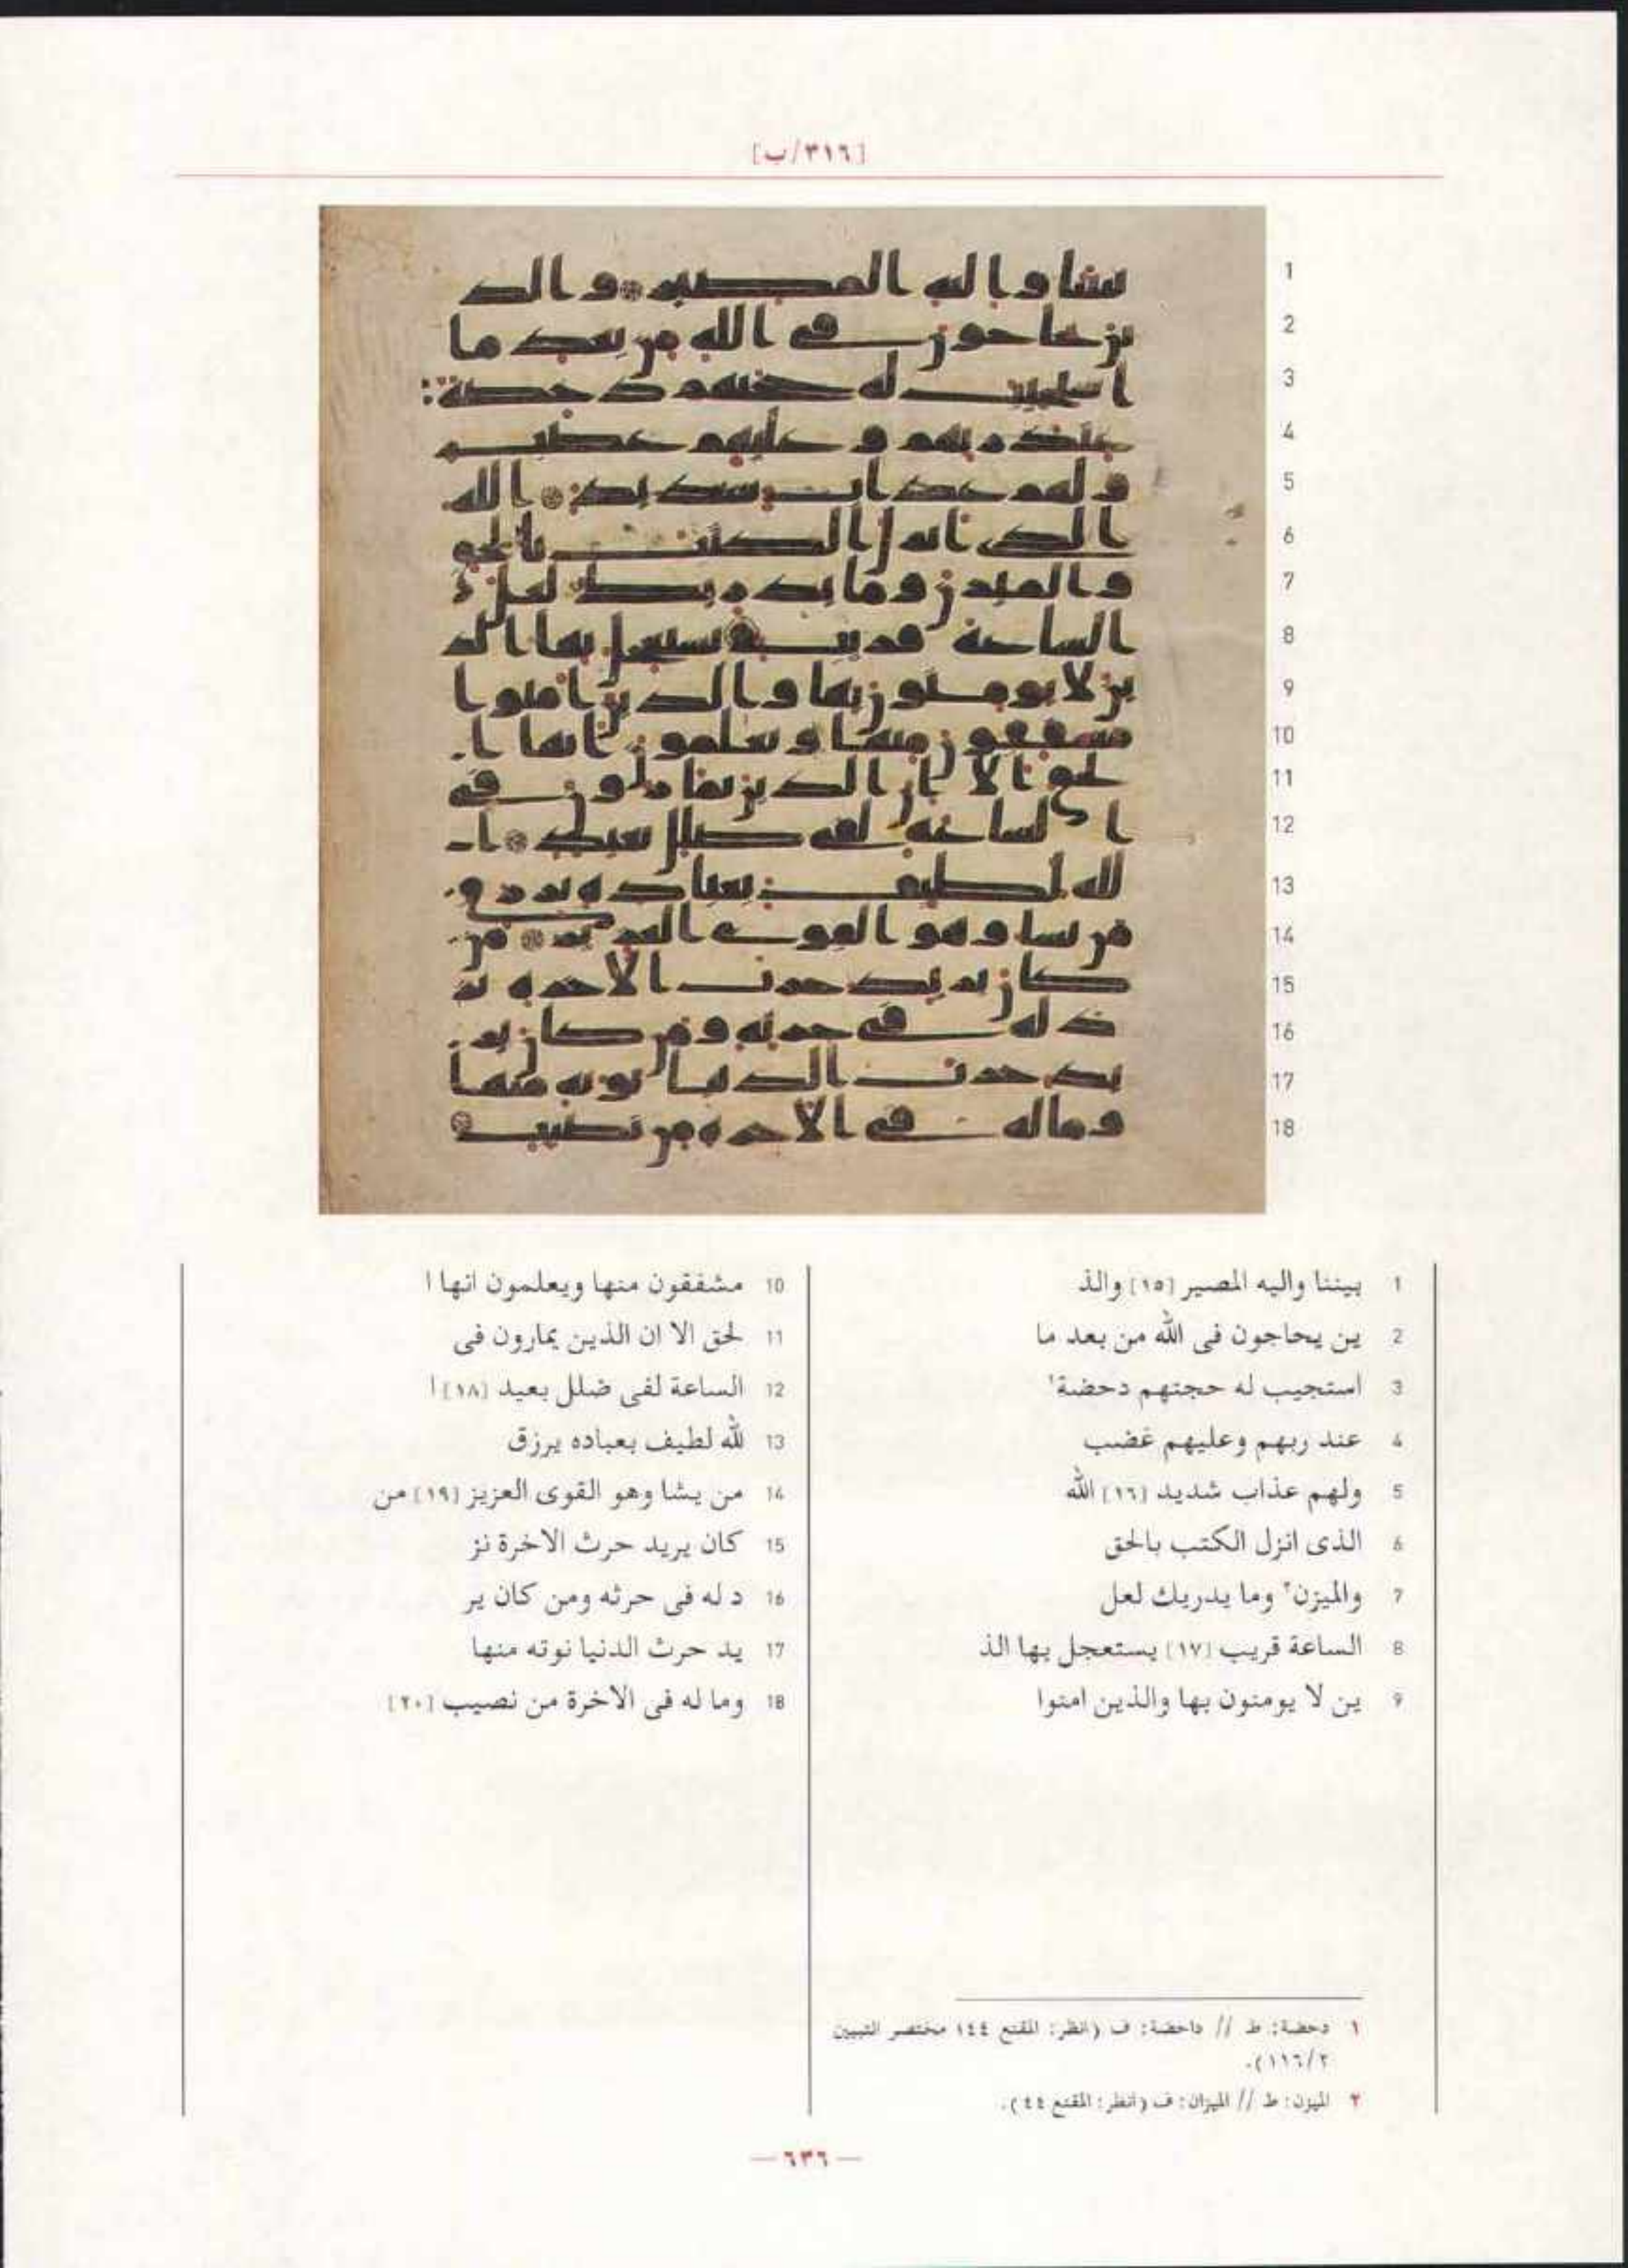 [٣١٦/ب]
1 بيننا واليه المصير [١٥] والذ
2 ين يحاجون فى الله من بعد ما
3 استجيب له حجتهم دحضة١
4 عند ربهم وعليهم غضب
5 ولهم عذاب شديد [١٦] الله
6 الذى انزل الكتب بالحق
7 والميزن٢ وما يدريك لعل
8 الساعة قريب [١٧] يستعجل بها الذ
9 ين لا يومنون بها والذين امنوا
10 مشفقون منها ويعلمون انها ا
11 لحق الا ان الذين يمارون فى
12 الساعة لفى ضلل بعيد [١٨] ا
13 لله لطيف بعباده يرزق
14 من يشا وهو القوى العزيز [١٩] من
15 كان يريد حرث الاخرة نز
16 د له فى حرثه ومن كان ير
17 يد حرث الدنيا نوته منها
18 وما له فى الاخرة من نصيب [٢٠]
١ دحضة: ط // داحضة: ف (انظر: المقنع ٤٤؛ مختصر التبيين
٢/١١٦).
٢ الميزن: ط // الميزان: ف (انظر: المقنع ٤٤).
— ٦٣٦ —